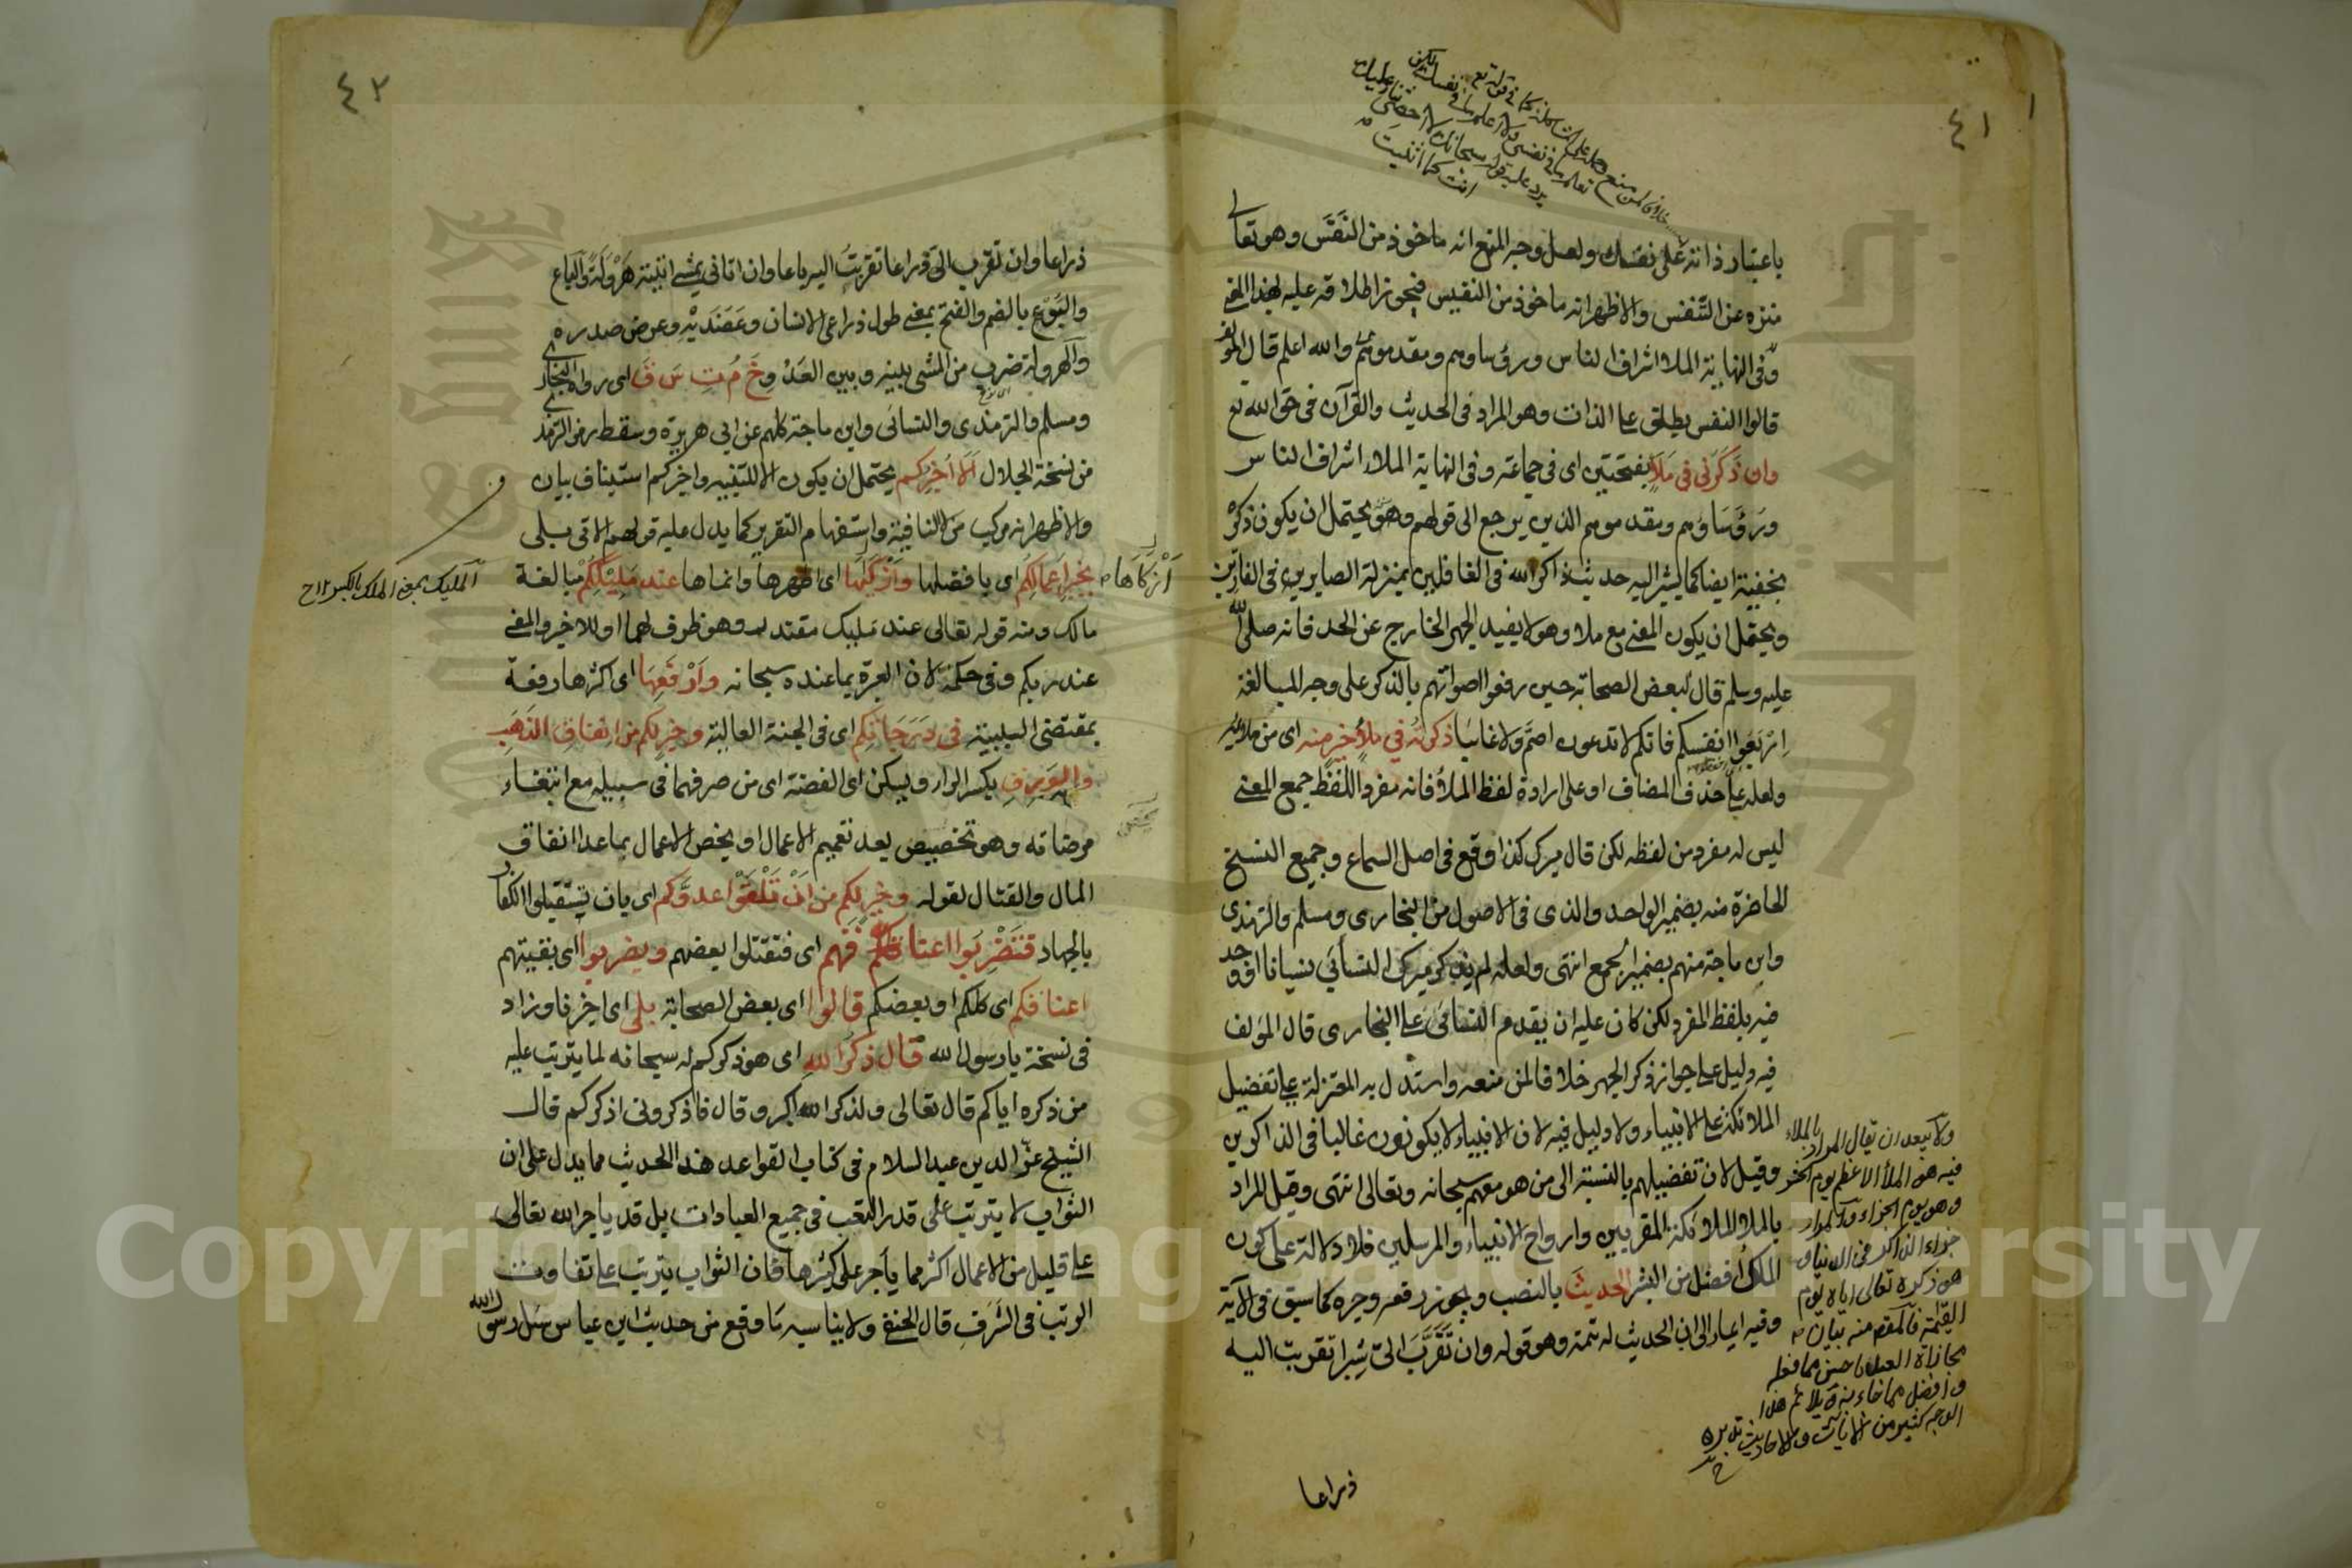 ٤١
باعتبار ذاته على نفسك ولعل وجه المنع انه ماخوذ من النَّفَس وهو تعالى
منزه عن التنفس والاظهر انه ماخوذ من النفيس فيجوز اطلاقه عليه بهذا المعنى
وفى النهاية الملا اشراف الناس ورؤساوهم ومقدموهم والله اعلم قال المؤلف
قالوا النفس يطلق على الذات وهو المراد فى الحديث والقرآن فى حق الله تع
وان ذَكَرَنى فى مَلَاءٍ بفتحتين اى فى جماعة وفى النهاية الملاء اشراف الناس
ورؤساؤهم ومقدموهم الذين يرجع الى قولهم وهو يحتمل ان يكون ذكره
بخفية ايضا كما يشير اليه حديث ذاكر الله فى الغافلين بمنزلة الصابرين فى الفارين
ويحتمل ان يكون المعنى مع ملا وهو لا يفيد الجهر الخارج عن الحد فانه صلى الله
عليه وسلم قال لبعض الصحابة حين رفعوا اصواتهم بالذكر على وجه المبالغة
اِرْبَعُوا انفسكم فانكم لا تدعون اصمّ ولا غائبا ذكرتُه في ملأٍ خيرٍ منه اى من ملائه
ولعله على حذف المضاف او على ارادة لفظ الملأ فانه مفرد اللفظ جمع المعنى
ليس له مفرد من لفظه لكن قال ميرك كذا وقع فى اصل السماع وجميع النسخ
الحاضرة منه بضمير الواحد والذى فى الاصول من البخارى ومسلم والترمذى
وابن ماجة منهم بضمير الجمع انتهى ولعله لم يذكر ميرك النسائي نسيانا او وجد
فيه بلفظ المفرد لكن كان عليه ان يقدم النسائى على البخارى قال المؤلف
فيه دليل على جواز ذكر الجهر خلافا لمن منعه واستدل به المعتزلة على تفضيل
الملائكة على الانبياء ولا دليل فيه لان الانبياء لا يكونون غالبا فى الذاكرين
وقيل لان تفضيلهم بالنسبة الى من هو معهم سبحانه وتعالى انتهى وقيل المراد
بالملا الملائكة المقربين وارواح الانبياء والمرسلين فلا دلالة على كون
الملك افضل من البشر الحديثَ بالنصب ويجوز رفعه وجره كما سبق فى الآية
وفيه ايماء الى ان الحديث له تتمة وهو قوله وان تَقَرَّبَ الىّ شبرا تقربت اليه
ولا يبعد ان يقال المراد بالملاء
فيه هو الملأ الاعظم يوم الحشر
وهو يوم الجزاء والمراد
جزاء الذاكر فى الدنيا
هو ذكره تعالى اياه يوم
القيمة فالمقصم منه بيان
مجازاة العبد باحسن مما فعله
وافضل مما جاء به ويلائم هذا
الوجه كثير من الايات والاحاديث تدبره
ذراعا
٤٢
ذراعا وان تقرب الىّ ذراعا تقربتُ اليه باعا وان اتانى يمشى اتيته هَرْوَلَةً والباع
والبَوع بالضم والفتح بمعنى طول ذراعى الانسان وعَضَدَيْهِ وعرض صدره
والهرولة ضرب من المشى بينه وبين العَدْو خَ مُ تِ سَ قَ اى رواه البخارى
ومسلم والترمذى والنسائى وابن ماجة كلهم عن ابى هريرة وسقط رمز الترمذى
من نسخة الجلال اَلَا اُخبركم يحتمل ان يكون الا للتنبيه واخبركم استيناف بيان
والاظهر انه مركب من لا النافية واستفهام التقرير كما يدل عليه قولهم الاتى بلى
بخَيرِ اَعمالِكُم اى بافضلها وازكٰيها اى اطهرها وانماها عند مَليككُم مبالغة
اَزْكَاها
المليك بمعنى الملك بالكسر
مالك ومنه قوله تعالى عند مليك مقتدر وهو ظرف لهما او للاخير والمعنى
عند ربكم وفى حكمه لان العبرة بما عنده سبحانه وَاَرْفَعِهَا اى اكثرها رفعة
بمقتضى السببية فى دَرَجَاتِكم اى فى الجنة العالية وخيرٍ لكم من انفاقِ الذَهَبِ
والوَرِقِ بكسر الراء ويسكن اى الفضة اى من صرفهما فى سبيله مع ابتغاء
مرضاته وهو تخصيص بعد تعميم الاعمال او يخص الاعمال بما عدا انفاق
المال والقتال لقوله وخيرٍ لكم من اَنْ تَلْقَوْا عدوَّكم اى بان تستقبلوا الكفار
بالجهاد فتَضْرِبُوا اعناقَهم اى فتقتلوا بعضهم ويضربوا اى بقيتهم
اعناقكم اى كلكم او بعضكم قالوا اى بعض الصحابة بلى اى اخبرنا وزاد
فى نسخة يا رسول الله قال ذكرُ اللهِ اى هو ذكركم له سبحانه لما يترتب عليه
من ذكره اياكم قال تعالى ولذكر الله اكبر وقال فاذكرونى اذكركم قال
الشيخ عزّ الدين عبد السلام فى كتاب القواعد هذا الحديث مما يدل على ان
الثواب لا يترتب على قدر التعب فى جميع العبادات بل قد ياجر الله تعالى
على قليل من الاعمال اكثر مما يأجر على كثيرها فان الثواب يترتب على تفاوت
الرتب فى الشَرَفِ قال الحنفى ولا يناسبه ما وقع من حديث ابن عباس سئل رسول الله